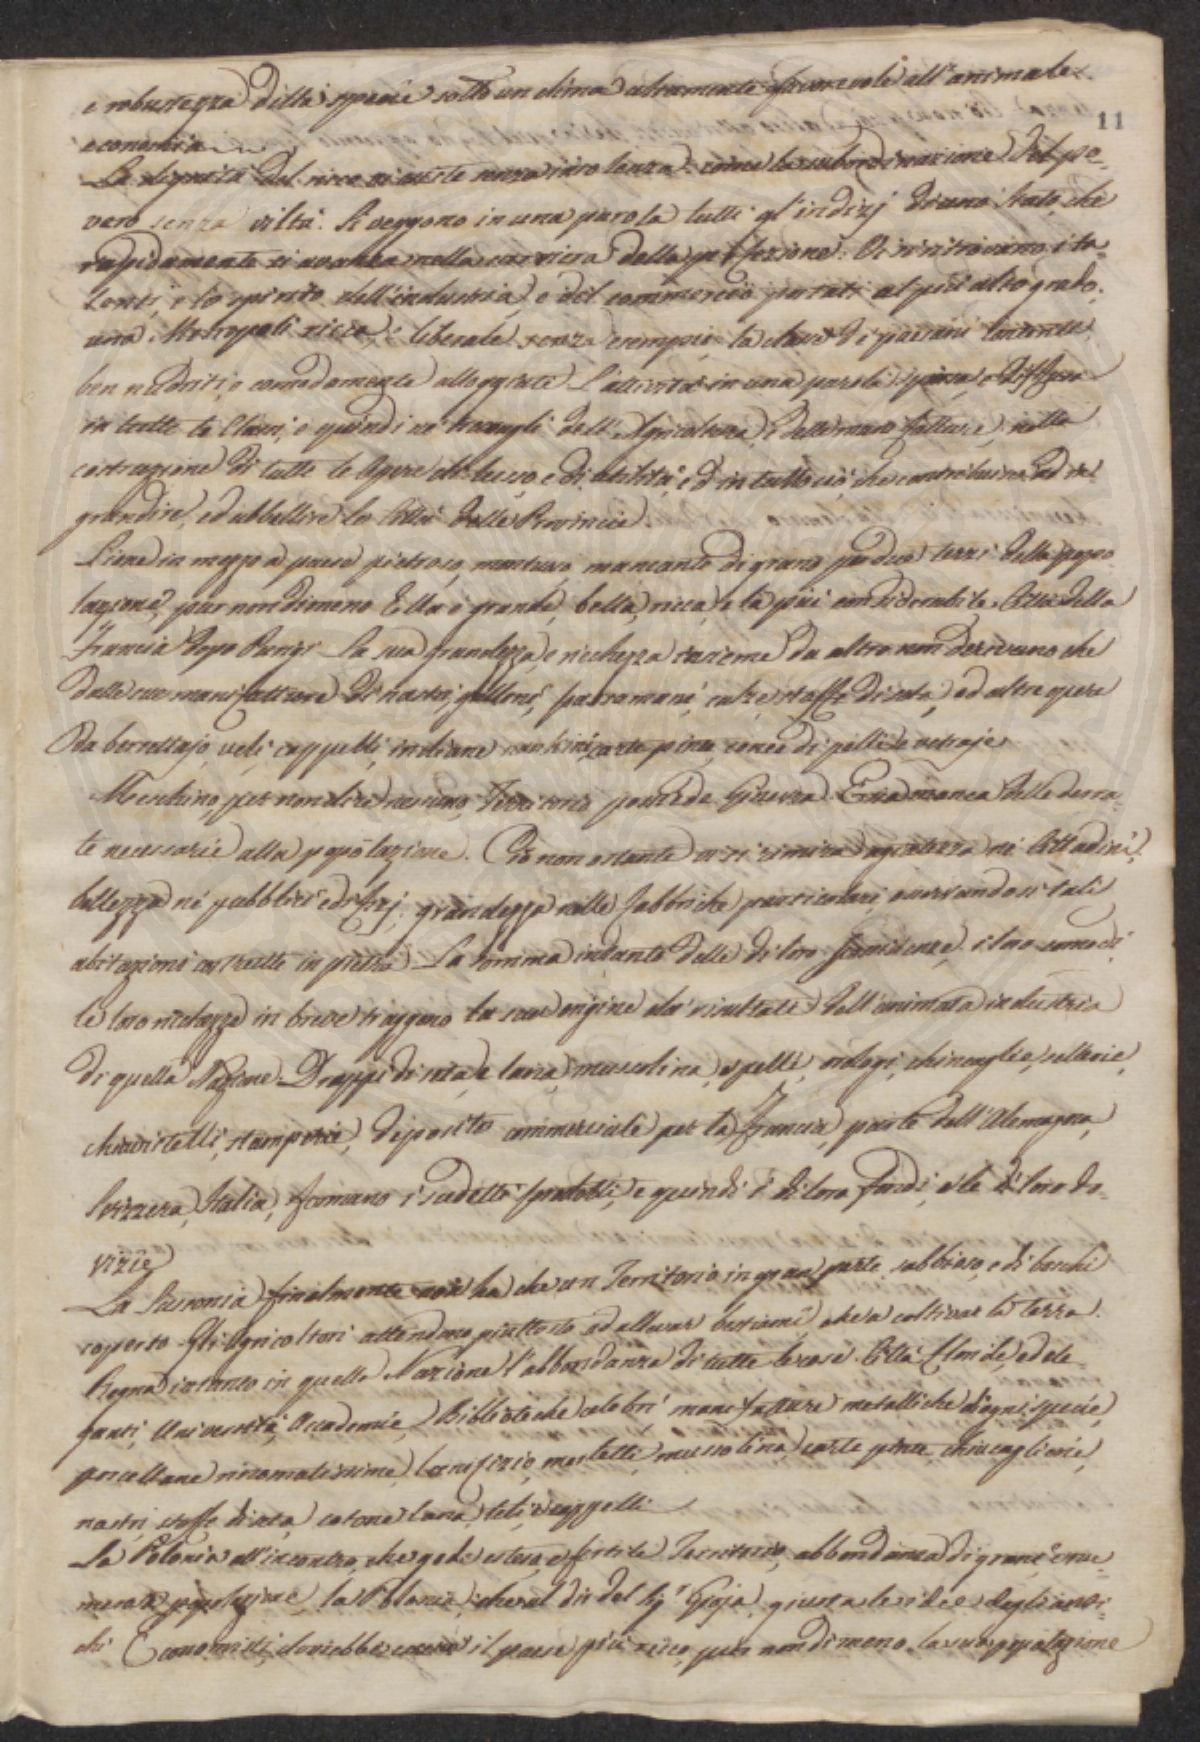 e robustezza della specie sotto un clima altamente favorevole all'animale
11
economia
La dignità del ricco vi esiste senza insolenza: come la subordinazione del po-
vero senza viltà. Si veggono in una parola tutti gl'indizj di uno Stato, che
rapidamente si avanza nella carriera della perfezione. Vi si ritrovano i ta-
lenti, e lo spirito dell'industria, e del commercio portati al più alto grado,
una Metropoli ricca, e liberale senza esempio, la classe de' paesani contenta,
ben nudrita, e comodamente alloggiata. L'attività in una parola spinta, e diffusa
in tutte le Classi, e quindi ne' travagli dell'Agricoltura, e delle manifatture, nella
costruzione di tutte le Opere di lusso, e di utilità, ed in tutto ciò, che contribuisce ad in-
grandire, ed abbellire le Città delle Provincie.
Lione in mezzo a paese pietroso, montuoso, mancante di grano per due terzi della popo
lazione, pur nondimeno Ella è grande, bella, ricca, e la più considerabile Città della
Francia dopo Parigi. La sua grandezza, e ricchezza insieme da altro non derivano che
dalle sue manifatture di nastri, galloni, passamani, calze, stoffe di seta, ed altre opere
da berrettajo, veli, cappelli, indiane, nankini, carte pinte, conce di pelli, e vetraje.
Meschino, per non dire nessuno, Territorio possiede Ginevra. Essa manca delle derra-
te necessarie alla popolazione. Ciò non ostante vi si rimira agiatezza ne' Cittadini,
bellezza ne' pubblici edifizj, grandezza nelle fabbriche particolari, osservandosi tali
abitazioni costrutte in pietra. La somma intanto delle di loro
le loro ricchezze in breve traggono la sua origine da' risultati dell'animata industria
di quella Nazione. Drappi di seta, e lana, mussolina, e pelli, orologi, chincaglie, sellerie,
chiavistelli, stamperie, deposito commerciale per la Francia, parte dell'Alemagna,
Svizzera, Italia, formano i sudetti prodotti, e quindi i di loro fondi, e le di loro do-
vizie
La Sassonia finalmente non ha che un Territorio in gran parte sabbioso, e di boschi
coperto. Gli Agricoltori attendono piuttosto ad allevar bestiami, che a coltivar la terra.
Regna intanto in quella Nazione l'abbondanza di tutte le cose. Città floride, ed ele-
ganti, Università, Accademie, Biblioteche celebri, manifatture metalliche d'ogni specie,
porcellane rinomatissime, lanifizio, merletti, mussolina, carte pinte, chincaglierie,
nastri, stoffe di seta, cotone, lana, tele, e cappelli.
La Polonia all'incontro, che gode esteso, e fertile Territorio, abbondanza di grani, e nu-
merosa popolazione, la Polonia, che al dir del Sig.r Gioja, giusta le idee degli anti-
chi Economisti, dovrebbe essere il paese più ricco, pur nondimeno la sua popolazione